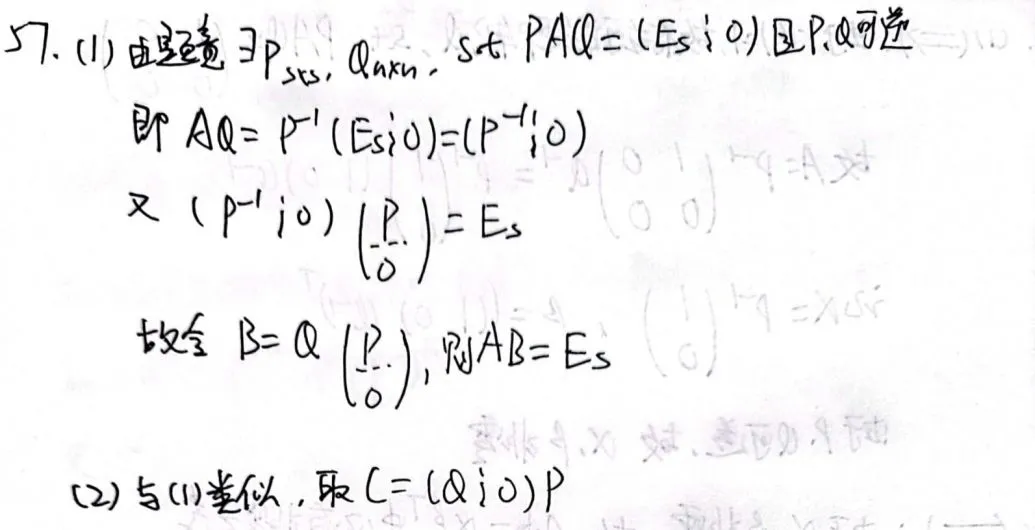 57. (1) 由题意 ∃P_{s×s}, Q_{n×n}, s.t. PAQ = (E_s ⋮ 0) 且P,Q可逆
即 AQ = P^{-1} (E_s ⋮ 0) = (P^{-1} ⋮ 0)
又 (P^{-1} ⋮ 0) \begin{pmatrix} P \\ \cdots \\ 0 \end{pmatrix} = E_s
故令 B = Q \begin{pmatrix} P \\ \cdots \\ 0 \end{pmatrix}, 则AB = E_s
(2) 与(1)类似, 取 C = (Q ⋮ 0) P